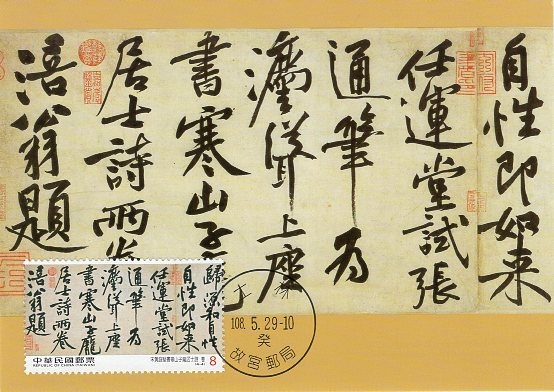 自性即如来
任運堂試張
通筆為
灋聳上座
書寒山子
居士詩兩卷
涪翁題
自性即如来
任運堂試張
通筆為
灋聳上座
書寒山子龐
居士詩兩卷
涪翁題
中華民國郵票
REPUBLIC OF CHINA (TAIWAN)
8
(4-4)
108.5.29-10
癸
故宮郵局